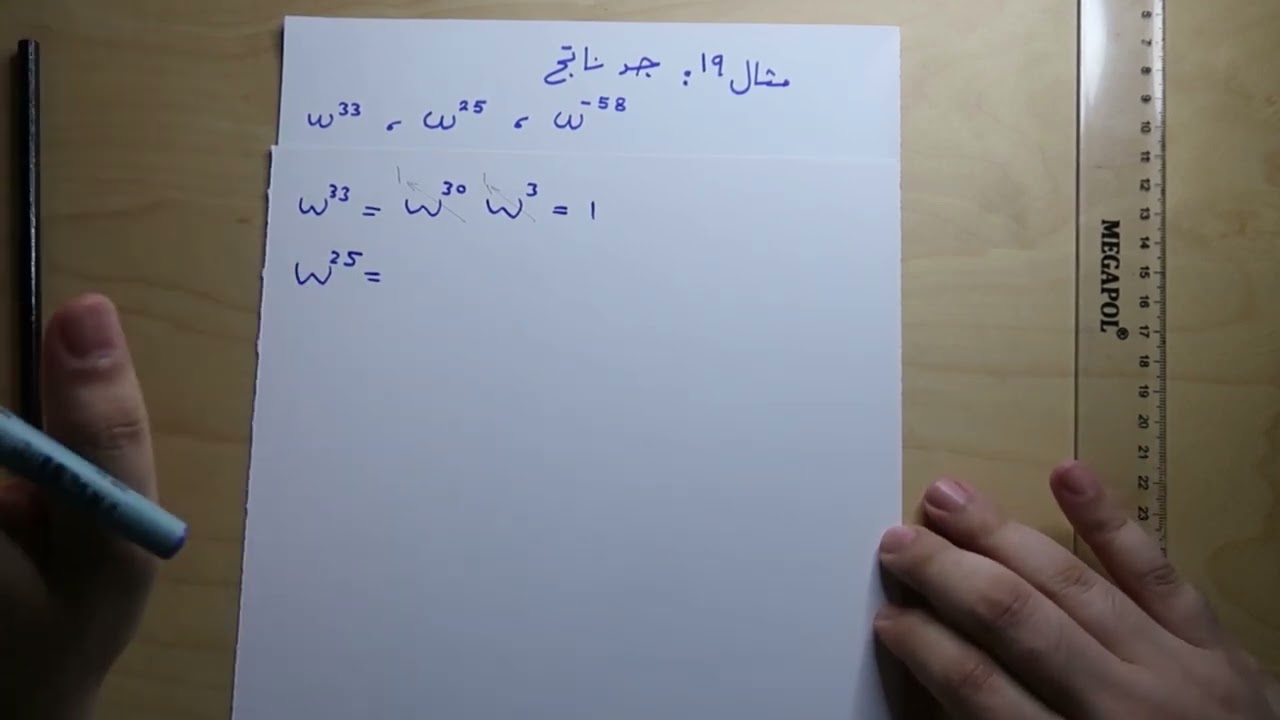 مثال ١٩: جد ناتج
ω³³ ، ω²⁵ ، ω⁻⁵⁸
ω³³ = ω³⁰ ω³ = 1
1 1
ω²⁵ =
MEGAPOL®
6 7 8 9 10 11 12 13 14 15 16 17 18 19 20 21 22 23